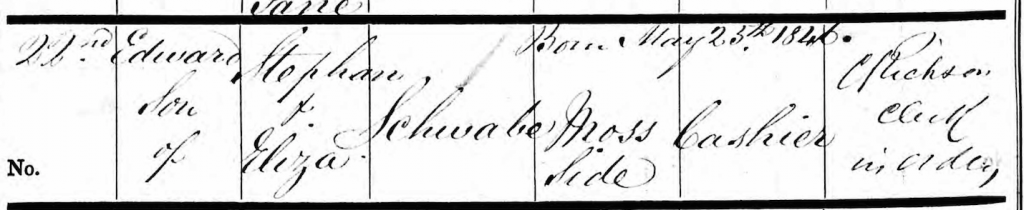 Jane
Born May 25th 1846.
22nd Edward Stephan Schwabe Moss Cashier C Richson
Son & Side Clerk
of Eliza in orders
No.